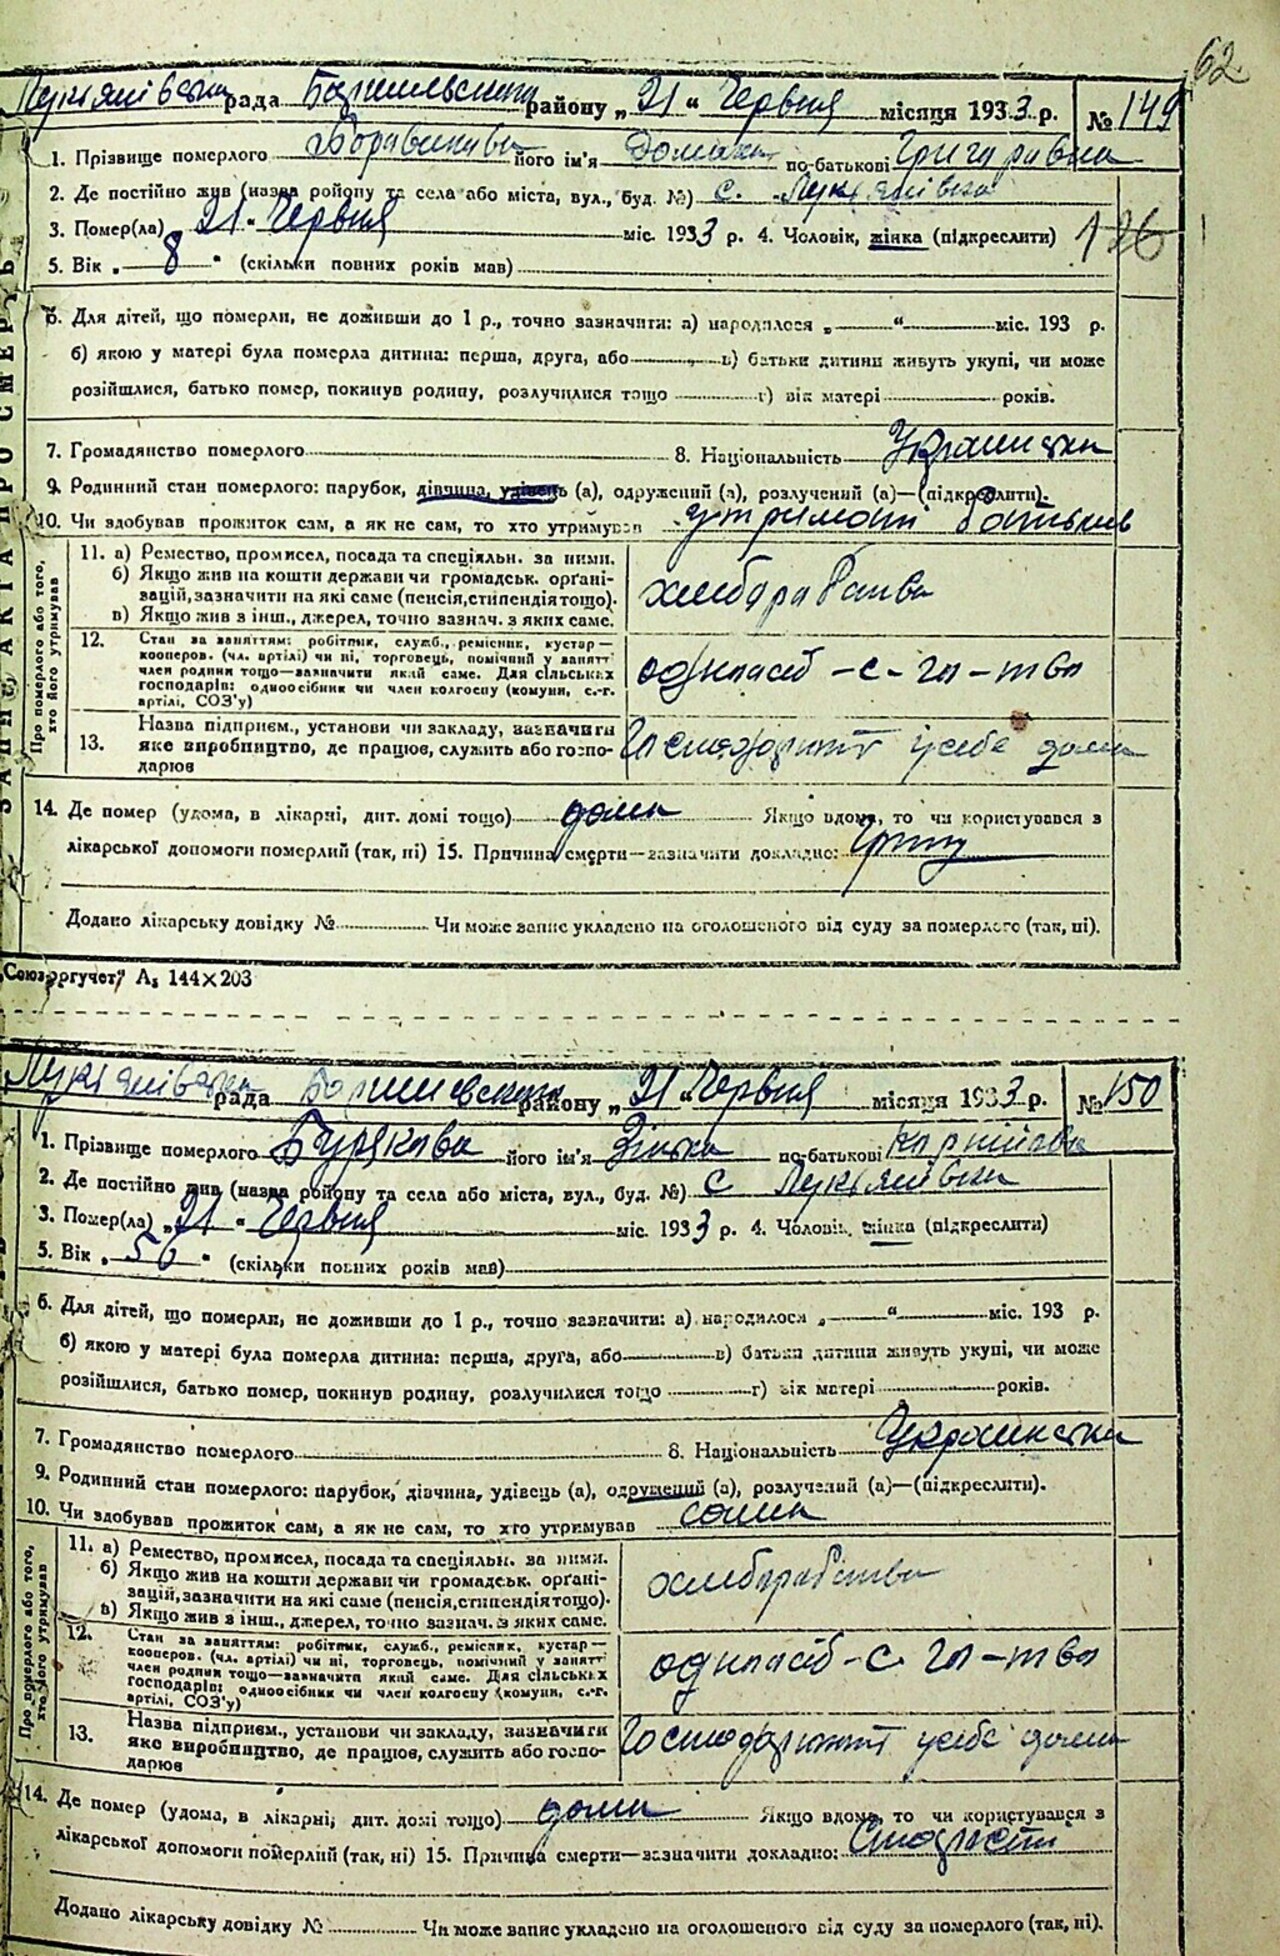 62
Лукянівська рада Баришевського району „ 21 “ Червня місяця 1933 р. № 149
1. Прізвище померлого його ім'я Домаха по-батькові Григоравна
2. Де постійно жив (назва ройону та села або міста, вул., буд. №) с. Лукянівка
3. Помер(ла) „ 21 “ Червня міс. 1933 р. 4. Чоловік, жінка (підкреслити) 126
5. Вік „ 8 “ (скільки повних років мав)
6. Для дітей, що померли, не доживши до 1 р., точно зазначити: а) народилося „ “ міс. 193 р.
б) якою у матері була померла дитина: перша, друга, або в) батьки дитини живуть укупі, чи може
розійшлися, батько помер, покинув родину, розлучилися тощо г) вік матері років.
7. Громадянство померлого 8. Національність Украинська
9. Родинний стан померлого: парубок, дівчина, удівець (а), одружений (а), розлучений (а)—(підкреслити).
10. Чи здобував прожиток сам, а як не сам, то хто утримував утримані батьків
ЗАПИС АКТА ПРО СМЕРТЬ
Про померлого або того, хто його утримував
11. а) Ремество, промисел, посада та спеціяльн. за ними.
б) Якщо жив на кошти держави чи громадськ. орґані-
зацій, зазначити на які саме (пенсія, стипендія тощо).
в) Якщо жив з інш., джерел, точно зазнач. з яких саме.
хлебарабства
12. Стан за заняттям: робітник, служб., ремісник, кустар—
кооперов. (чл. артілі) чи ні, торговець, помічний у занятт
член родини тощо—зазначити який саме. Для сільських
господарів: одноосібник чи член колгоспу (комуни, с.-г.
артілі, СОЗ'у)
однасіб – с – го – тва
13. Назва підприєм., установи чи закладу, зазначити
яке виробництво, де працює, служить або госпо-
дарює
Господарнит у себе дома
14. Де помер (удома, в лікарні, дит. домі тощо) дома Якщо вдома, то чи користувався з
лікарської допомоги померлий (так, ні) 15. Причина смерти—зазначити докладно: Грипу
Додано лікарську довідку № Чи може запис укладено на оголошеного від суду за померлого (так, ні).
„Союзоргучет“ А₅ 144×203
Лукянівська рада Баришевського району „ 21 “ Червня місяця 1933 р. № 150
1. Прізвище померлого Бурякова його ім'я Зінька по-батькові Карнійовна
2. Де постійно жив (назва ройону та села або міста, вул., буд. №) с Лукянівка
3. Помер(ла) „ 21 “ Червня міс. 1933 р. 4. Чоловік, жінка (підкреслити)
5. Вік „ 56 “ (скільки повних років мав)
6. Для дітей, що померли, не доживши до 1 р., точно зазначити: а) народилося „ “ міс. 193 р.
б) якою у матері була померла дитина: перша, друга, або в) батьки дитини живуть укупі, чи може
розійшлися, батько помер, покинув родину, розлучилися тощо г) вік матері років.
7. Громадянство померлого 8. Національність Украинська
9. Родинний стан померлого: парубок, дівчина, удівець (а), одружений (а), розлучений (а)—(підкреслити).
10. Чи здобував прожиток сам, а як не сам, то хто утримував сама
Про померлого або того, хто його утримував
11. а) Ремество, промисел, посада та спеціяльн. за ними.
б) Якщо жив на кошти держави чи громадськ. орґані-
зацій, зазначити на які саме (пенсія, стипендія тощо).
в) Якщо жив з інш., джерел, точно зазнач. з яких саме.
хлебарабства
12. Стан за заняттям: робітник, служб., ремісник, кустар—
кооперов. (чл. артілі) чи ні, торговець, помічний у занятт
член родини тощо—зазначити який саме. Для сільських
господарів: одноосібник чи член колгоспу (комуни, с.-г.
артілі, СОЗ'у)
однасіб – с. го – тва
13. Назва підприєм., установи чи закладу, зазначити
яке виробництво, де працює, служить або госпо-
дарює
Господарнит у себе дома
14. Де помер (удома, в лікарні, дит. домі тощо) дома Якщо вдома, то чи користувався з
лікарської допомоги померлий (так, ні) 15. Причина смерти—зазначити докладно: Старости
Додано лікарську довідку № Чи може запис укладено на оголошеного від суду за померлого (так, ні).